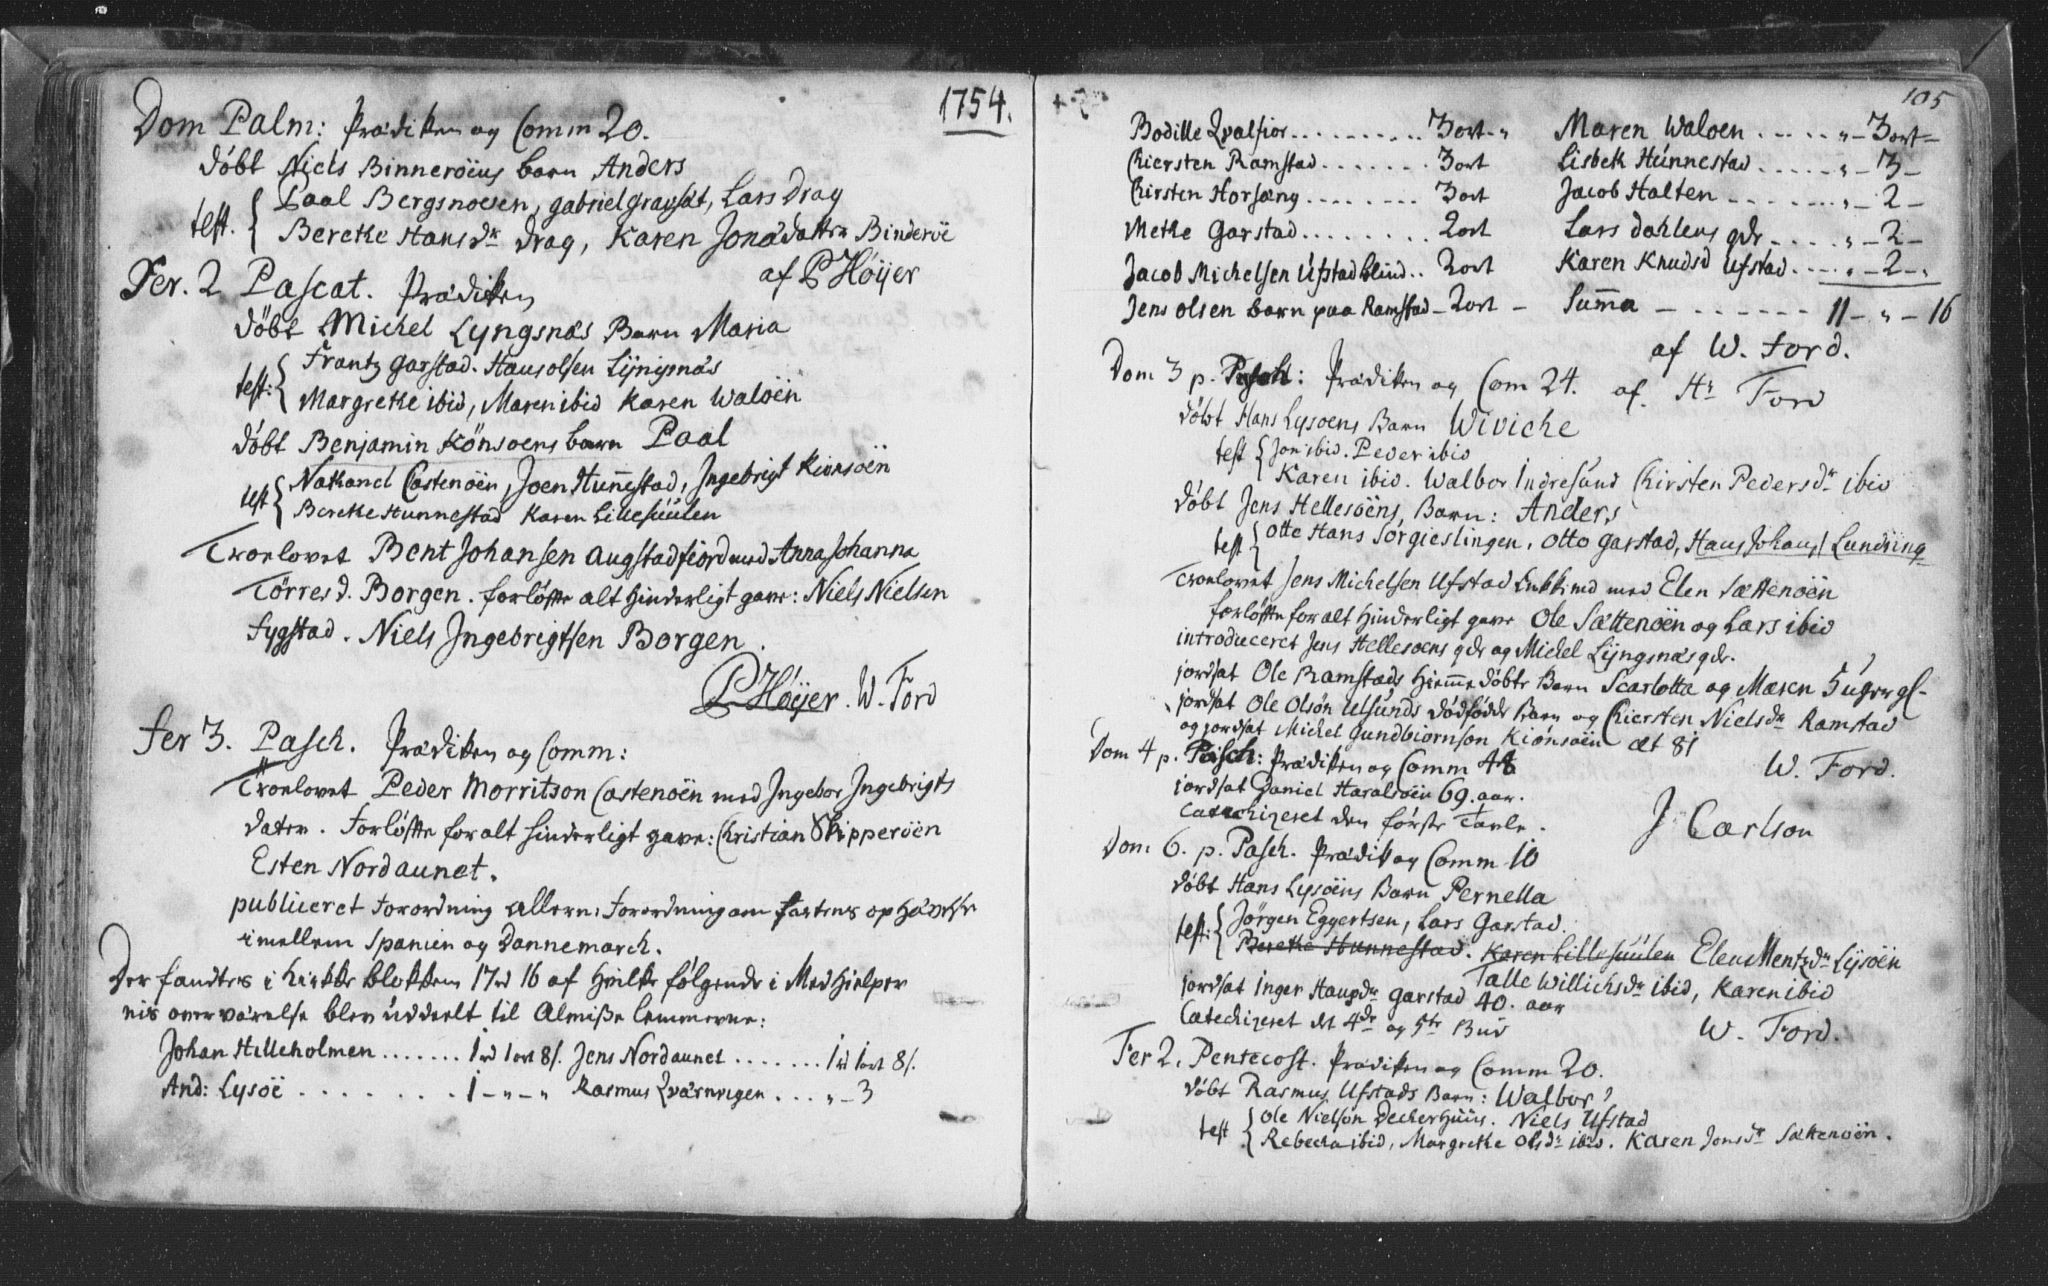 1754.
Dom Palm: Prædiken og Comm 20.
døbt Niels Binnerøens barn Anders
test. { Paal Bergsnoesen, gabriel gravsæt, Lars Drag
Berethe Hansdr drag, Karen Jonædatter Binderøe
af P Høyer
Fer. 2 Pascat. Prædiken
døbt Michel Lyngsnæs Barn Maria
test: { Frantz garstad. Hans olsen Lyngsnæs
Margrethe ibid, Maren ibid Karen Waløen
døbt Benjamin Könsoens barn Paal
test { Nathanel Castenøen, Joen Hunnestad, Ingebrigt Kiønsøen
Berethe Hunnestad Karen Lillesúúlen
Troelovet Bent Johansen augstadfiord med Anna Johanna
Tørresd. Borgen. forløfte alt hinderligt gave: Niels Nielsen
Sygstad. Niels Ingebrigtsen Borgen.
P Høyer. W. Ford
fer 3. Pasch. Prædiken og Comm:
Troelovet Peder Morritson Castenøen med Ingebor Ingebrigts
dater. Forløfte for alt hinderligt gave: Christian Skipperøen
Esten Nordaunet.
publiceret Forordning allern: Forordning om fastens ophævelse
imellem Spanien og Dannemarch.
Der fandtes i kirke blokken 17rd 16 af hvilke følgende i Medhielper
nis overværelse blev úddeelt til Almisse lemmerne:
Johan Hilleholmen ....... 1rd 1ort 8s. Jens Nordaunet ....... 1rd 1ort 8s.
And: Lysøe ........ 1 - „ - „ Rasmus Qværnvigen .... „ - 3
105
Bodille Qvalfior .......... 3ort - „ Maren Waloen ..... „ - 3ort -
Chiersten Ramstad ....... 3ort Lisbeth Húnnestad ..... „ - 3 -
Chirsten Horsæng ........ 3ort Jacob Halten ....... „ - 2 -
Methe Garstad ........ 2ort Lars dahlens qdr .... „ - 2 -
Jacob Michelsen Ufstad blind .. 2ort Karen Knudsd Ufstad .... „ - 2 - „
Jens olsen barn paa Ramstad - 2ort - Sum̄a - ...... 11 - „ - 16
af W. Ford.
Dom 3 p. Pasch: Prædiken og Com 24. af. Hr Ford
døbt Hans Lysoens Barn Wiviche
test { Jon ibid. Peder ibid
Karen ibid. Walbor Indresund Chirsten Pedersdr ibid
døbt Jens Hellesøens Barn: Anders
test { Otte Hans Sørgieslingen, Otto garstad, Hans Johans Lundring
Troelovet Jens Michelsen Ufstad Enkemd med Elen Sættenøen
forløfte for alt hinderligt gave Ole Sættenøen og Lars ibid
introduceret Jens Hellesoens qdr og Michel Lyngsnæs qdr.
jordsat Ole Ramstads hiemmedøbte Barn Scarlotta og Maren 5 uger gl-
jordsat Ole Olsøn Ulsúnds dødfødde Barn og Chiersten Nielsdr Ramstad
og jordsat Michel Gundbiornson Kiønsøen æt 81
W. Ford.
Dom 4 p. Pasch: Prædiken og Comm 48
jordsat Daniel Haralsøen 69. aar.
Catechizeret den første Tavle.
J Carlson
Dom 6. p. Pasch. Prædik og Comm 10
døbt Hans Lysøens Barn Pernella
test: { Jørgen Eggertsen, Lars Garstad.
Berethe Hunnestad. Karen Lillesúúlen Elen Mentzdr Lysøen
Talle Willichsdr ibid, Karen ibid
jordsat Inger Haupdr garstad 40. aar
Catechizeret det 4de og 5te Bud
W. Ford.
Fer 2. Pentecost. Prædiken og Comm 20.
døbt Rasmus Ufstads Barn: Walbor
test { Ole Nielson Deckerhúús. Niels Ufstad
Rebecka ibid, Margrethe Olsdr ibid. Karen Jonsdr Sættenøen.